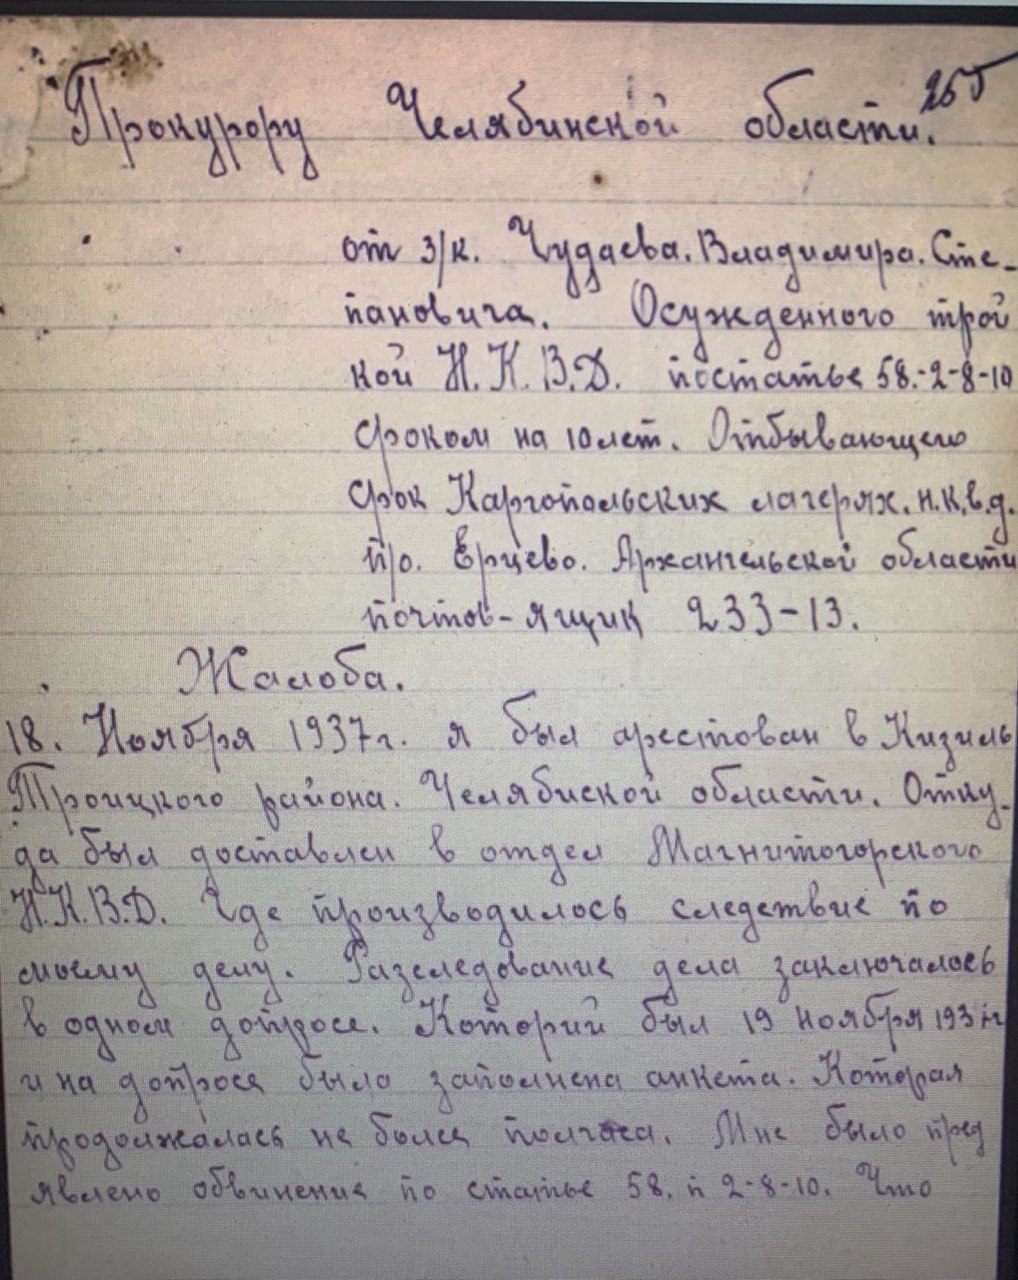 265
Прокурору Челябинской области.
от з/к. Чудаева. Владимира. Сте-
пановича. Осужденного трой
кой Н.К.В.Д. постатье 58.-2-8-10
сроком на 10 лет. Отбывающего
срок Каргопольских лагерях. н.к.в.д.
п/о. Ерцево. Архангельской области
почтов-ящик 233-13.
Жалоба.
18. Ноября 1937г. я был арестован в Кизиль
Троицкого района. Челябиской области. Отку-
да был доставлен в отдел Магнитогорского
Н.К.В.Д. Где производилось следствие по
моему делу. Разследование дела заключалось
в одном допросе. Которий был 19 ноября 1937г
и на допросе было заполнена анкета. Которая
продолжалась не более полчаса. Мне было пред
явлено обвинение по статье 58. п 2-8-10. Что